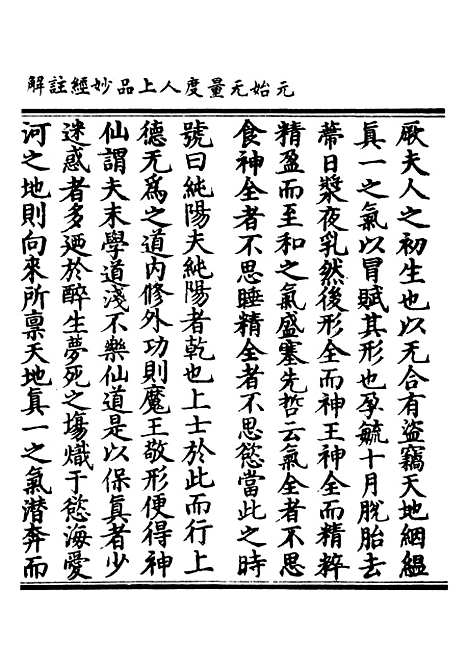 元始无量度人上品妙經註解
厥夫人之初生也以无合有盜竊天地絪縕
真一之氣以冒賦其形也孕毓十月脫胎去
蒂日漿夜乳然後形全而神王神全而精粹
精盈而至和之氣盛塞先哲云氣全者不思
食神全者不思睡精全者不思慾當此之時
號曰純陽夫純陽者乾也上士於此而行上
德无為之道內修外功則魔王敬形便得神
仙謂夫末學道淺不樂仙道是以保真者少
迷惑者多廼於醉生夢死之塲熾于慾海愛
河之地則向來所禀天地真一之氣潜奔而